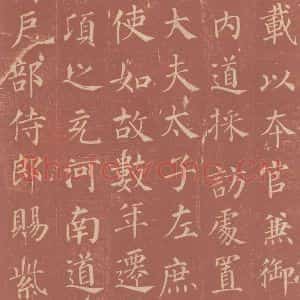 載以夲官兼御
内道採訪處置
大夫太子左庶
使如故數年遷
須之充河南道
戶部侍郎賜紫